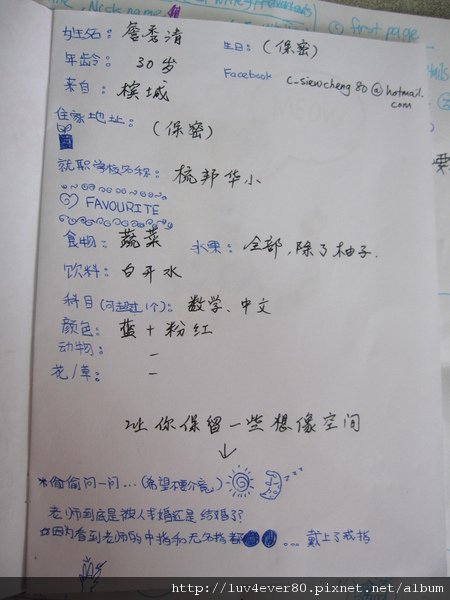 姓名: 詹秀清 生日: (保密)
年龄: 30 岁
Facebook c-siewcheng80@hotmail.com
来自: 槟城
住家地址: (保密)
就职学校名称: 梳邦华小
FAVOURITE
食物: 蔬菜 水果: 全部,除了柚子.
饮料: 白开水
科目(可超过1个): 数学、中文
颜色: 蓝 + 粉红
动物: –
花/草: –
让你保留一些想像空间
↓
*偷偷问一问...(希望不要介意) zzz
老师到底是被人订婚还是结婚了?
因为看到老师的中指和无名指都 ... 戴上了戒指
first page
http://luv4ever80.pixnet.net/album